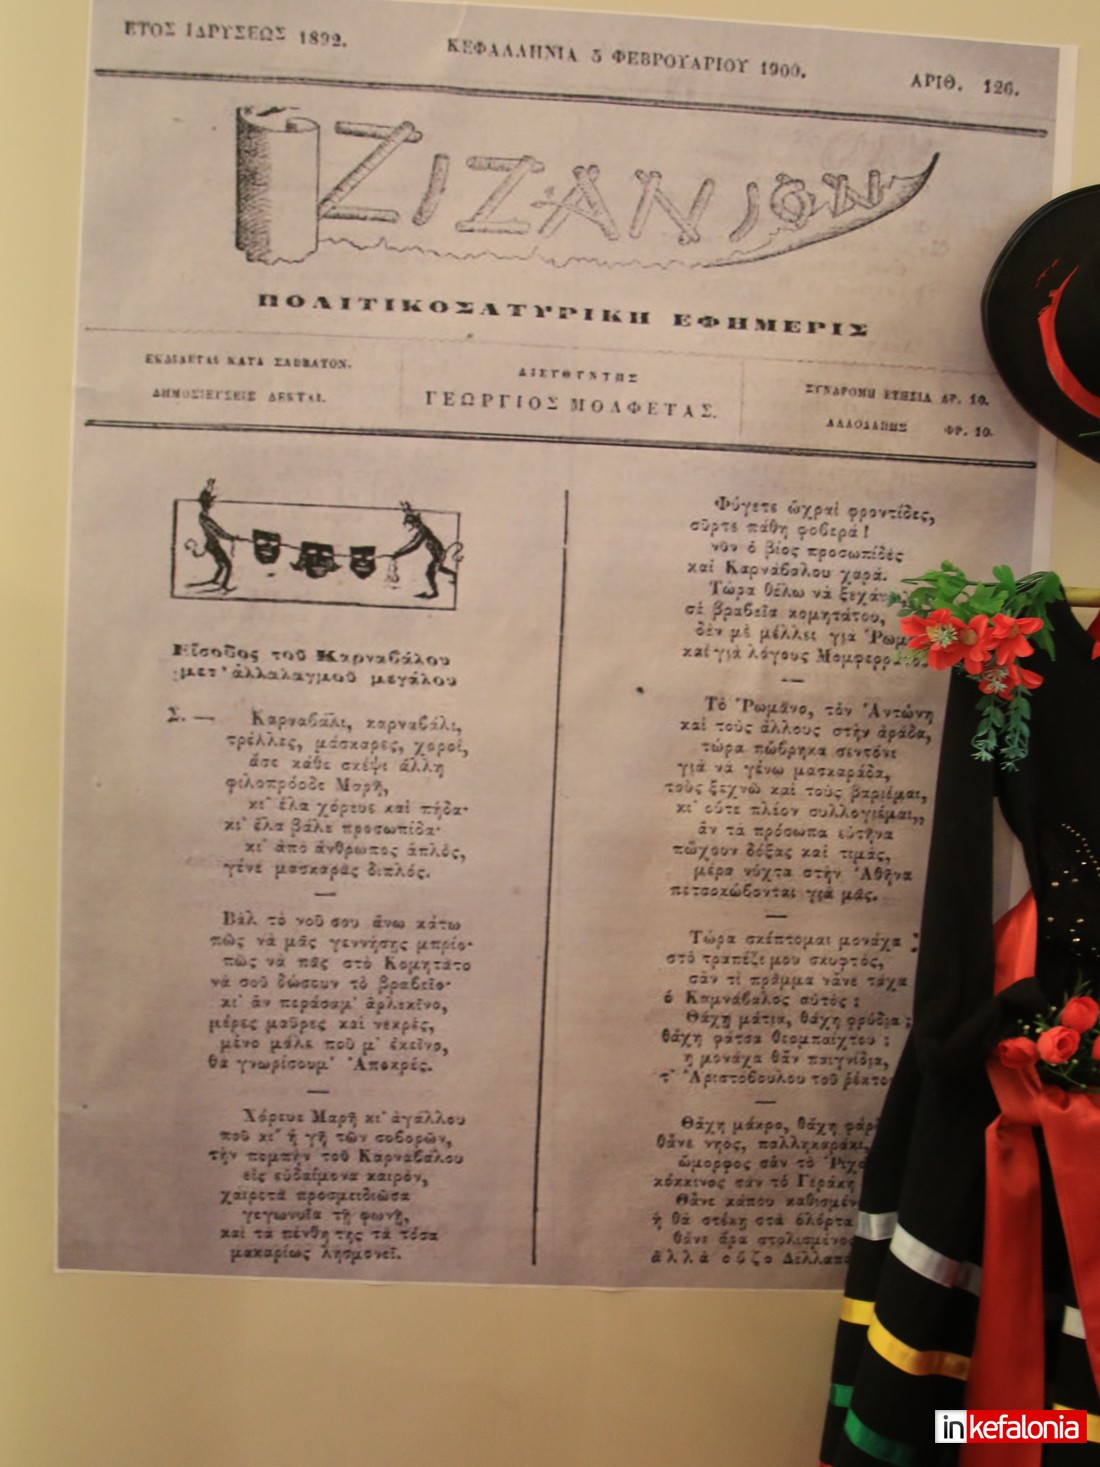 ΕΤΟΣ ΙΔΡΥΣΕΩΣ 1892.
ΚΕΦΑΛΛΗΝΙΑ 5 ΦΕΒΡΟΥΑΡΙΟΥ 1900.
ΑΡΙΘ. 126.
ΖΙΖΑΝΙΟΝ
ΠΟΛΙΤΙΚΟΣΑΤΥΡΙΚΗ ΕΦΗΜΕΡΙΣ
ΕΚΔΙΔΕΤΑΙ ΚΑΤΑ ΣΑΒΒΑΤΟΝ.
ΔΗΜΟΣΙΕΥΣΕΙΣ ΔΕΚΤΑΙ.
ΔΙΕΥΘΥΝΤΗΣ
ΓΕΩΡΓΙΟΣ ΜΟΛΦΕΤΑΣ.
ΣΥΝΔΡΟΜΗ ΕΤΗΣΙΑ ΔΡ. 10.
ΑΛΛΟΔΑΠΗΣ ΦΡ. 10.
Εἴσοδος τοῦ Καρναβάλου
μετ' ἀλλαλαγμοῦ μεγάλου
Σ. — Καρναβάλι, καρναβάλι,
τρέλλες, μάσκαρες, χοροί,
ἄσε κάθε σκέψι ἄλλη
φιλοπρόοδε Μαρῆ,
κι' ἔλα χόρευε καὶ πήδα·
κι' ἔλα βάλε προσωπίδα·
κι' ἀπὸ ἄνθρωπος ἁπλός,
γένε μασκαρᾶς διπλός.
—
Βάλ τὸ νοῦ σου ἄνω κάτω
πῶς νὰ μᾶς γεννήσῃς μπρίο·
πῶς νὰ πᾶς στὸ Κομητάτο
νὰ σοῦ δώσουν τὸ βραβεῖο·
κι' ἂν περάσαμ' ἀρλεκῖνο,
μέρες μαῦρες καὶ νεκρὲς,
μένο μάλε ποῦ μ' ἐκεῖνο,
θὰ γνωρίσουμ' Ἀποκρές.
—
Χόρευε Μαρῆ κι' ἀγάλλου
ποῦ κι' ἡ γῆ τῶν σοβορῶν,
τὴν πομπὴν τοῦ Καρναβάλου
εἰς εὐδαίμονα καιρὸν,
χαιρετᾷ προσμειδιῶσα
γεγωνυῖα τῇ φωνῇ,
καὶ τὰ πένθη της τὰ τόσα
μακαρίως λησμονεῖ.
Φύγετε ὠχραὶ φροντίδες,
σῦρτε πάθη φοβερά!
νῦν ὁ βίος προσωπίδες
καὶ Καρνάβαλου χαρά.
Τώρα θέλω νὰ
σὲ βραβεῖα κομητάτου,
δὲν μὲ μέλλει γιὰ
καὶ γιὰ λόγους
—
Τὸ Ῥωμᾶνο, τὸν Ἀντώνη
καὶ τοὺς ἄλλους στὴν ἀράδα,
τώρα πὤβρηκα σεντόνι
γιὰ νὰ γένω μασκαράδα,
τοὺς ξεχνῶ καὶ τοὺς βαριέμαι,
κι' οὔτε πλέον συλλογιέμαι,,
ἂν τὰ πρόσωπα εὐτῆνα
πὤχουν δόξας καὶ τιμὰς,
μέρα νύχτα στὴν Ἀθῆνα
πετσοκώβονται γιὰ μᾶς.
—
Τώρα σκέπτομαι μονάχα
στὸ τραπέζι μου σκυφτός,
σὰν τί πρᾶμμα νἆνε τάχα
ὁ Καμνάβαλος αὐτός;
Θἄχῃ μάτια, θἄχῃ φρύδια;
θἄχῃ φάτσα θεομπαίχτου;
ἢ μονάχα θἂν παιγνίδια,
τ' Ἀριστόβουλου τοῦ ῥέκτου
—
Θἄχη μάκρο, θἄχη
θἆνε νηὸς, παλληκαράκι,
ὤμορφος σὰν τὸ
κόκκινος σὰν τὸ Γεράκη
Θἆνε κάπου
ἢ θὰ στέκῃ στὰ ὁλόρτα
θἆνε ἆρα
ἀλλὰ οὔζο
inkefalonia